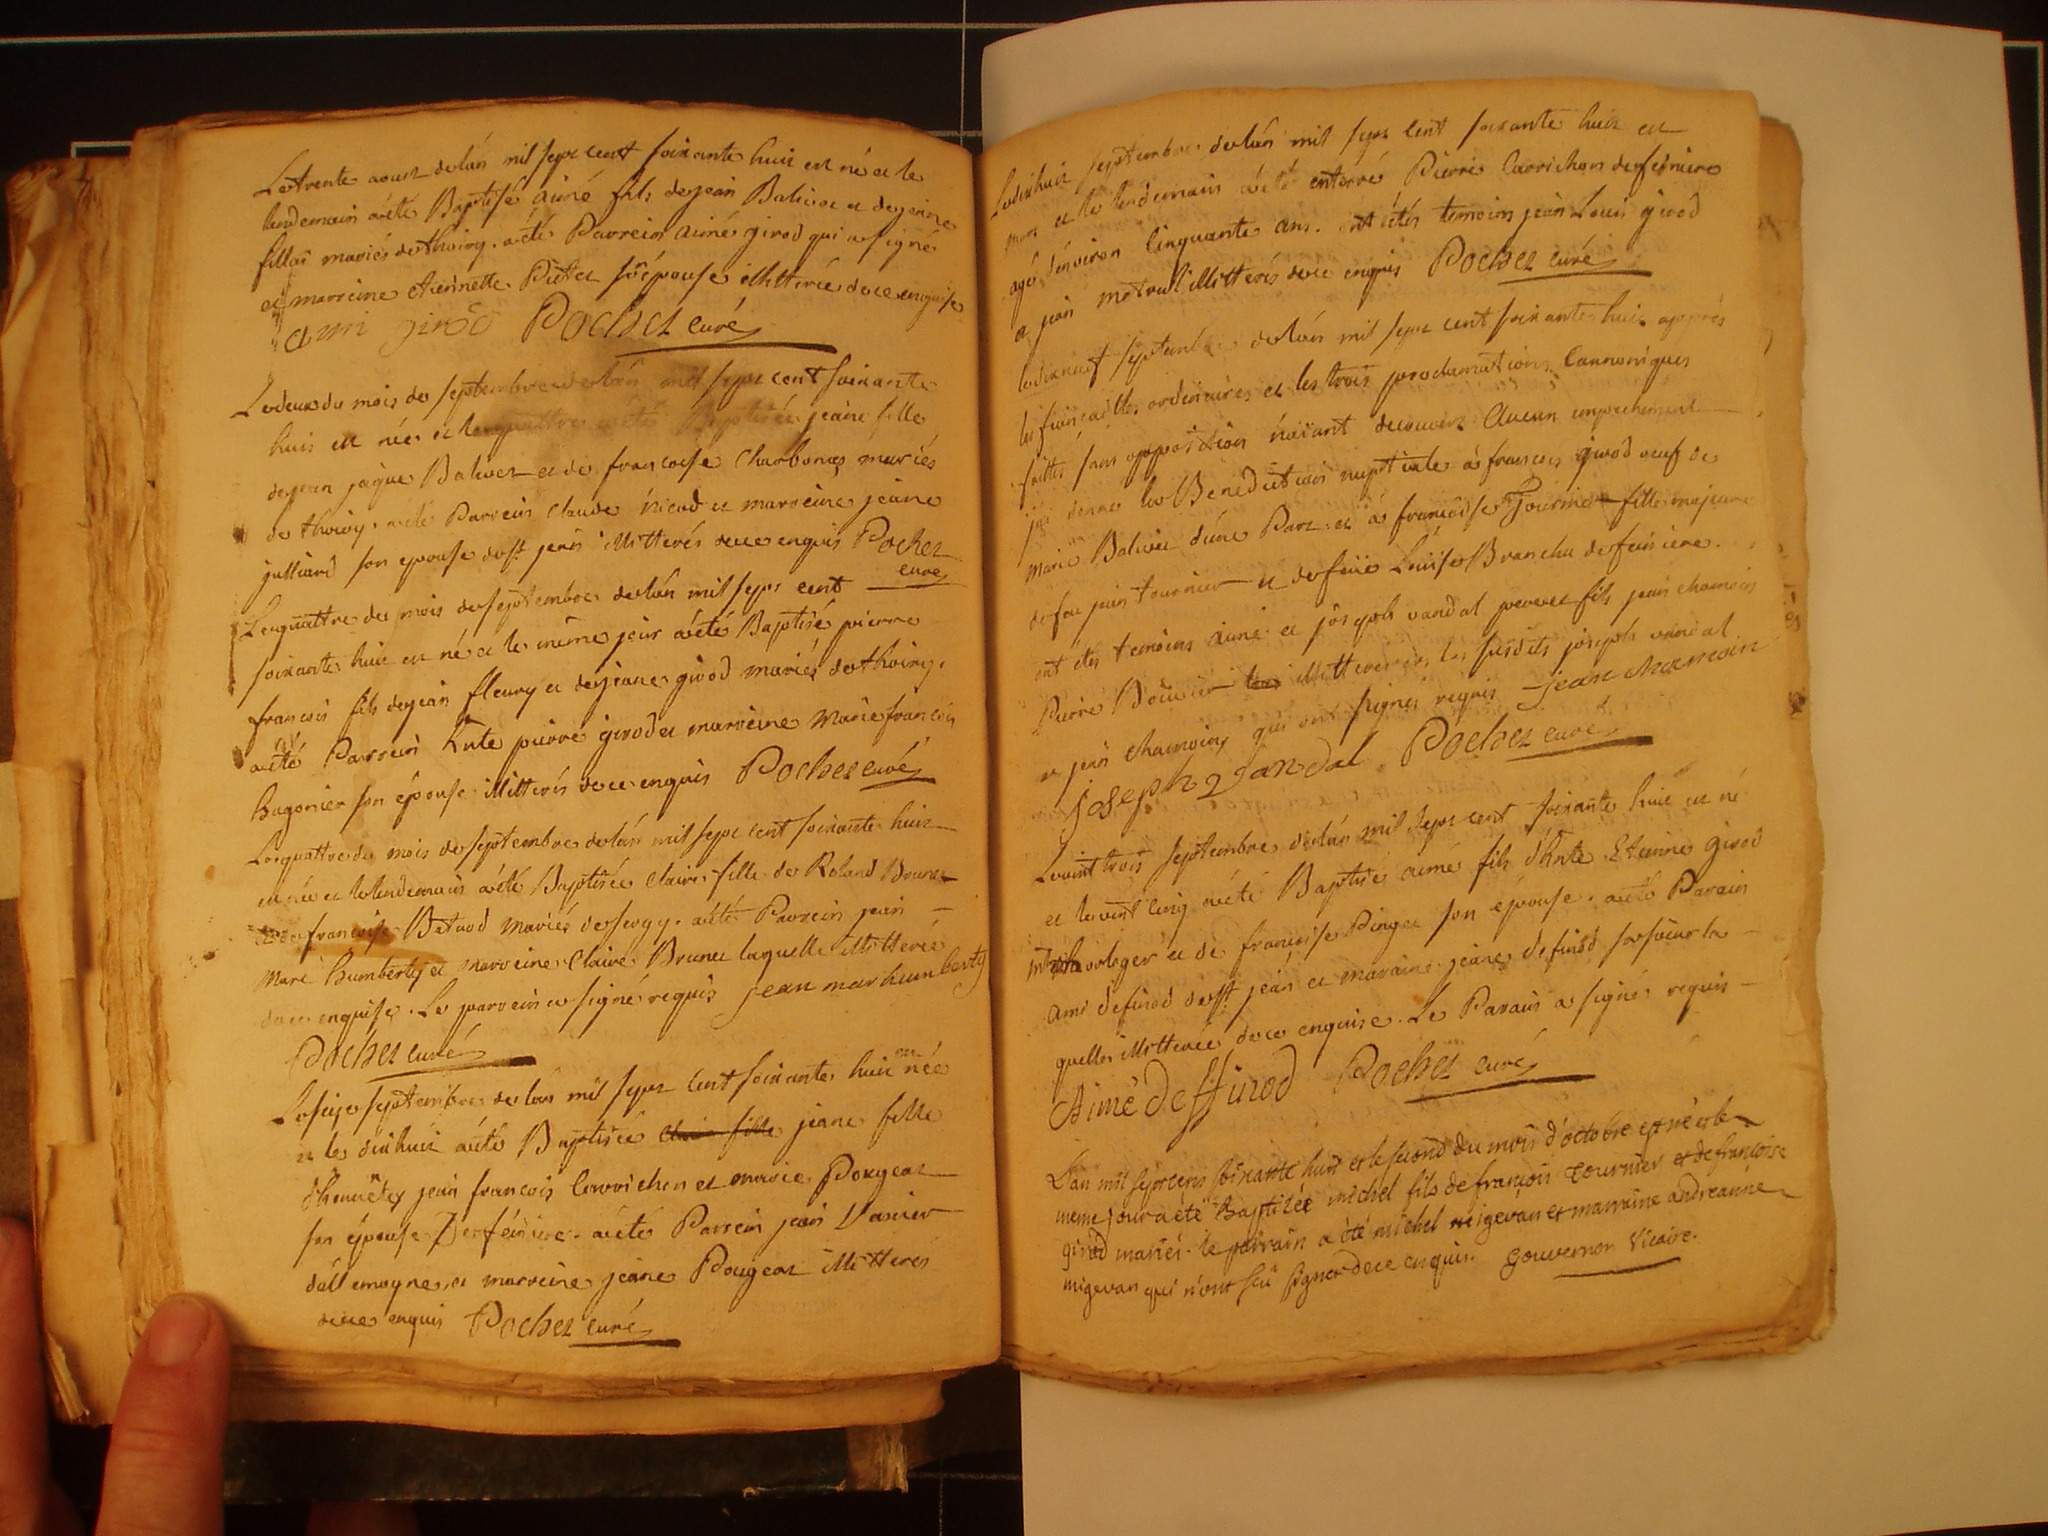 Le trente aoust de lan mil sept cent soixante huit est né et le
lendemain a été Baptisé aimé fils de jean Balivet et de jeanne
fillas mariés de thoiry. a été Parrein aimé girod qui a signé
et marreine etiennette Pictet son épouse illitterée de ce enquise
ami girod Pochet curé
Le deux du mois de septembre de lan mil sept cent soixante
huit est née et le quattre a été Baptisée jeane fille
de jean jaque Balivet et de françoise Charbonas mariés
de thoiry. a été Parrein claude nicod et marreine jeane
julliard son epouse de st jean illitterés de ce enquis Pochet
curé
Le quattre du mois de septembre de lan mil sept cent
soixante huit est né et le même jour a été Baptisé pierre
francois fils de jean fleury et de jeane girod mariés de thoiry.
a été Parrein hnte pierre girod et marreine marie francois
hugonier son épouse illitterés de ce enquis Pochet curé
Le quattre du mois de septembre de lan mil sept cent soixante huit
est née et le lendemain a été Baptisée claire fille de Roland Brunet
et de francoise Betrod mariés de sergy. a été Parrein jean
marc humberty et marreine Claire Brunet laquelle illitterée
de ce enquise. Le parrein a signé requis jean mark humberty
Pochet curé
Le seize septembre de lan mil sept cent soixante huit est née
et le dixhuit a été Baptisée claire fille jeane fille
dhonnêtes jean francois carrichon et marie Pougeat
son épouse de feniere. a été Parrein jean
dallemogne et marreine jeane Pougeat illitterés
de ce enquis Pochet curé
Le dixhuit septembre de lan mil sept cent soixante huit est
mort et le lendemain a été enterré Pierre Carrichon de feniere
agé denviron cinquante ans. ont étés temoins jean Louis girod
et jean métral illitterés de ce enquis Pochet curé
Le dixneuf septembre de lan mil sept cent soixante huit apprés
les fiancailles ordinaires et les trois proclamations cannoniques
faittes sans opposition n'aïant decouvert aucun empechement
jai donné la Benediction nuptiale à francois girod veuf de
marie Balivet dune Part et à francoise Tournier fille majeure
de feu jean tournier et de feüe Loüise Branchu de feniere.
ont étés temoins aimé et joseph vandal pere et fils jean chamoin
Pierre Boüvier illitterés les susdits joseph vandal
et jean chamoin qui ont signés requis jean chamoin
joseph vandal Pochet curé
Le vint trois septembre de lan mil sept cent soixante huit est né
et le vint cinq a été Baptisé aimé fils d'hnte Etienne girod
horloger et de françoise Pinget son épouse. a été Parain
amé defirod de st jean et maraine jeane defirod sa soeur la
quelle illitterée de ce enquise. Le Parain a signé requis
Aimé deffirod Pochet curé
L'an mil sept cens soixante huit et le second du mois d'octobre est né et le
meme jour a été Baptizée michel fils de françois tournier et de françoise
girod mariés. le parrain a été michel migevan et marraine andreanne
migevan qui n'ont sçu signer de ce enquis. Gouvernon Vicaire.